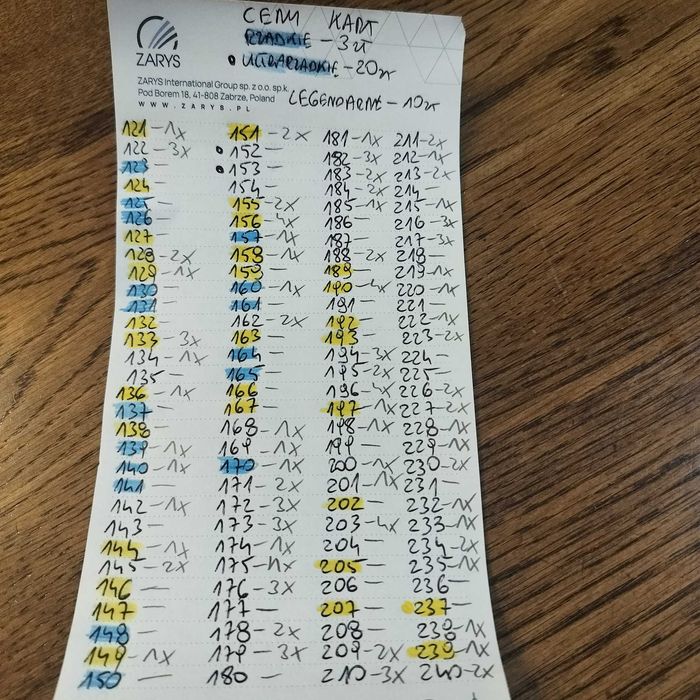 CENY KART
RZADKIE - 3 zł
• ULTRARZADKIE - 20 zł
LEGENDARNE - 10 zł
ZARYS
ZARYS International Group sp. z o.o. sp.k.
Pod Borem 18, 41-808 Zabrze, Poland
WWW.ZARYS.PL
121 - 1x
122 - 3x
123 -
124 -
125 -
126 -
127 -
128 - 2x
129 - 1x
130 -
131 -
132 -
133 - 3x
134 - 1x
135 -
136 - 1x
137 -
138 -
139 - 1x
140 - 1x
141 -
142 - 1x
143 -
144 - 1x
145 - 2x
146 -
147 -
148 -
149 - 1x
150 -
151 - 2x
• 152 -
• 153 -
154 -
155 - 2x
156 - 4x
157 - 1x
158 - 1x
159 -
160 - 1x
161 -
162 - 2x
163 -
164 -
165 -
166 -
167 -
168 - 1x
169 - 1x
170 - 1x
171 - 2x
172 - 3x
173 - 3x
174 - 1x
175 - 1x
176 - 3x
177 -
178 - 2x
179 - 3x
180 -
181 - 1x
182 - 3x
183 - 2x
184 - 2x
185 - 1x
186 -
187 -
188 - 2x
189 -
190 - 4x
191 -
192 -
193 -
194 - 3x
195 - 2x
196 - 4x
197 - 1x
198 - 1x
199 -
200 - 1x
201 - 1x
202 -
203 - 4x
204 -
205 -
206 -
207 -
208 -
209 - 2x
210 - 3x
211 - 2x
212 - 1x
213 - 2x
214 -
215 - 1x
216 - 3x
217 - 3x
218 -
219 - 1x
220 - 1x
221 -
222 - 1x
223 - 2x
224 -
225 -
226 - 2x
227 - 2x
228 - 1x
229 - 1x
230 - 2x
231 -
232 - 1x
233 - 1x
234 - 2x
235 - 1x
236 -
237 -
238 - 1x
239 - 1x
240 - 2x